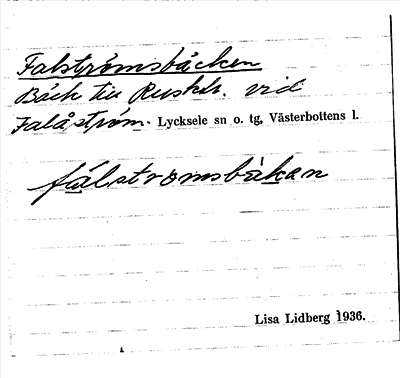 Falströmsbäcken
Bäck till Ruskbr. vid
Falåström. Lycksele sn o. tg, Västerbottens l.
fálstromsbäkan
Lisa Lidberg 1936.